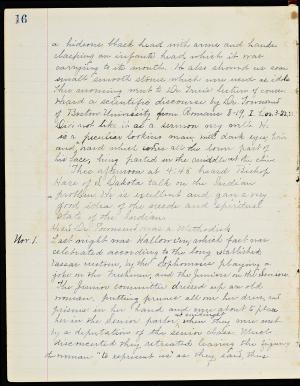 16
a hideous black head with arms and hands
clasping an infant's head which it was
carrying to its mouth. He also showed us some
small smooth stones which were used as idols
This morning went to Dr. lecture of course.
Heard a scientific discourse by Dr. Townsend
of Boston University from Romans 8-19, I Cor.
Did not like it as a sermon very well. He
is a peculiar looking man, with dark eyes, hair
and beard which covers all the lower part of
his face, being parted in the middle at the chin
This afternoon at 4:45 heard Bishop
Hare of S. Dakota talk on the Indian
problem. He is excellent and gave a very
good idea of the needs and spiritual
state of the Indian.
Dr. Townsend was a Methodist.
Nov. 1. Last night was Hallowe'en, which fact was
celebrated according to the long established
custom, by the Sophomores playing a
joke on the Freshmen, and the Juniors on the Seniors.
The Junior committee dressed up an old
woman, putting prunes all on her dress, and
prisms in her hand and
her in the Senior parlor, when they were met
by a deputation of the senior class. Much
disconcerted they retreated leaving the
woman "to represent us" as they said, thus